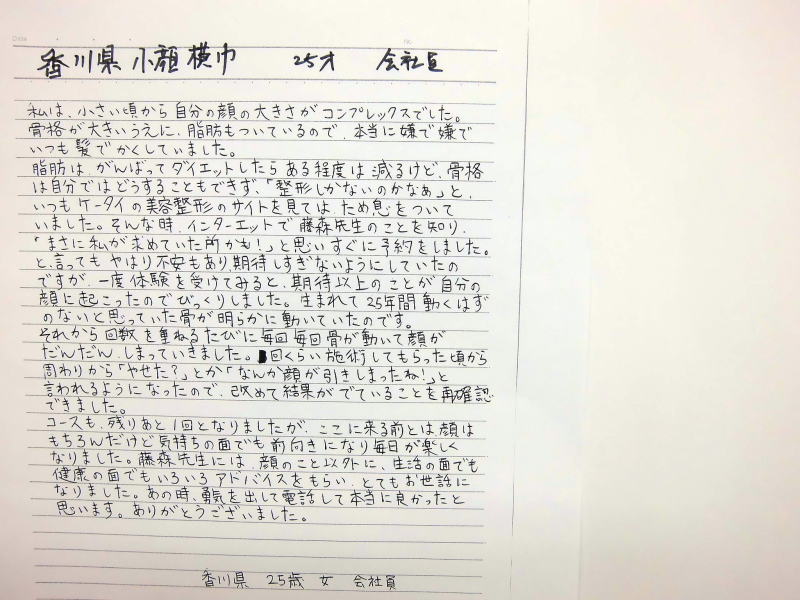 Date
No.
香川県 小顔 横巾 25才 会社員
私は、小さい頃から自分の顔の大きさがコンプレックスでした。
骨格が大きいうえに、脂肪もついているので、本当に嫌で嫌で
いつも髪でかくしていました。
脂肪は、がんばってダイエットしたらある程度は減るけど、骨格
は自分ではどうすることもできず、「整形しかないのかなぁ」と、
いつもケータイの美容整形のサイトを見ては、ため息をついて
いました。そんな時、インターネットで藤森先生のことを知り、
「まさに私が求めていた所かも!」と思いすぐに予約をしました。
と、言ってもやはり不安もあり、期待しすぎないようにしていたの
ですが、一度体験を受けてみると、期待以上のことが自分の
顔に起こったのでびっくりしました。生まれて25年間動くはず
のないと思っていた骨が明らかに動いていたのです。
それから回数を重ねるたびに毎回毎回骨が動いて顔が
だんだんしまっていきました。回くらい施術してもらった頃から
周わりから「やせた?」とか「なんか顔が引きしまったね!」と
言われるようになったので、改めて結果がでていることを再確認
できました。
コースも、残りあと1回となりましたが、ここに来る前とは、顔は
もちろんだけど気持ちの面でも前向きになり毎日が楽しく
なりました。藤森先生には、顔のこと以外に、生活の面でも
健康の面でもいろいろアドバイスをもらい、とてもお世話に
なりました。あの時、勇気を出して電話して本当に良かったと
思います。ありがとうございました。
香川県 25歳 女 会社員